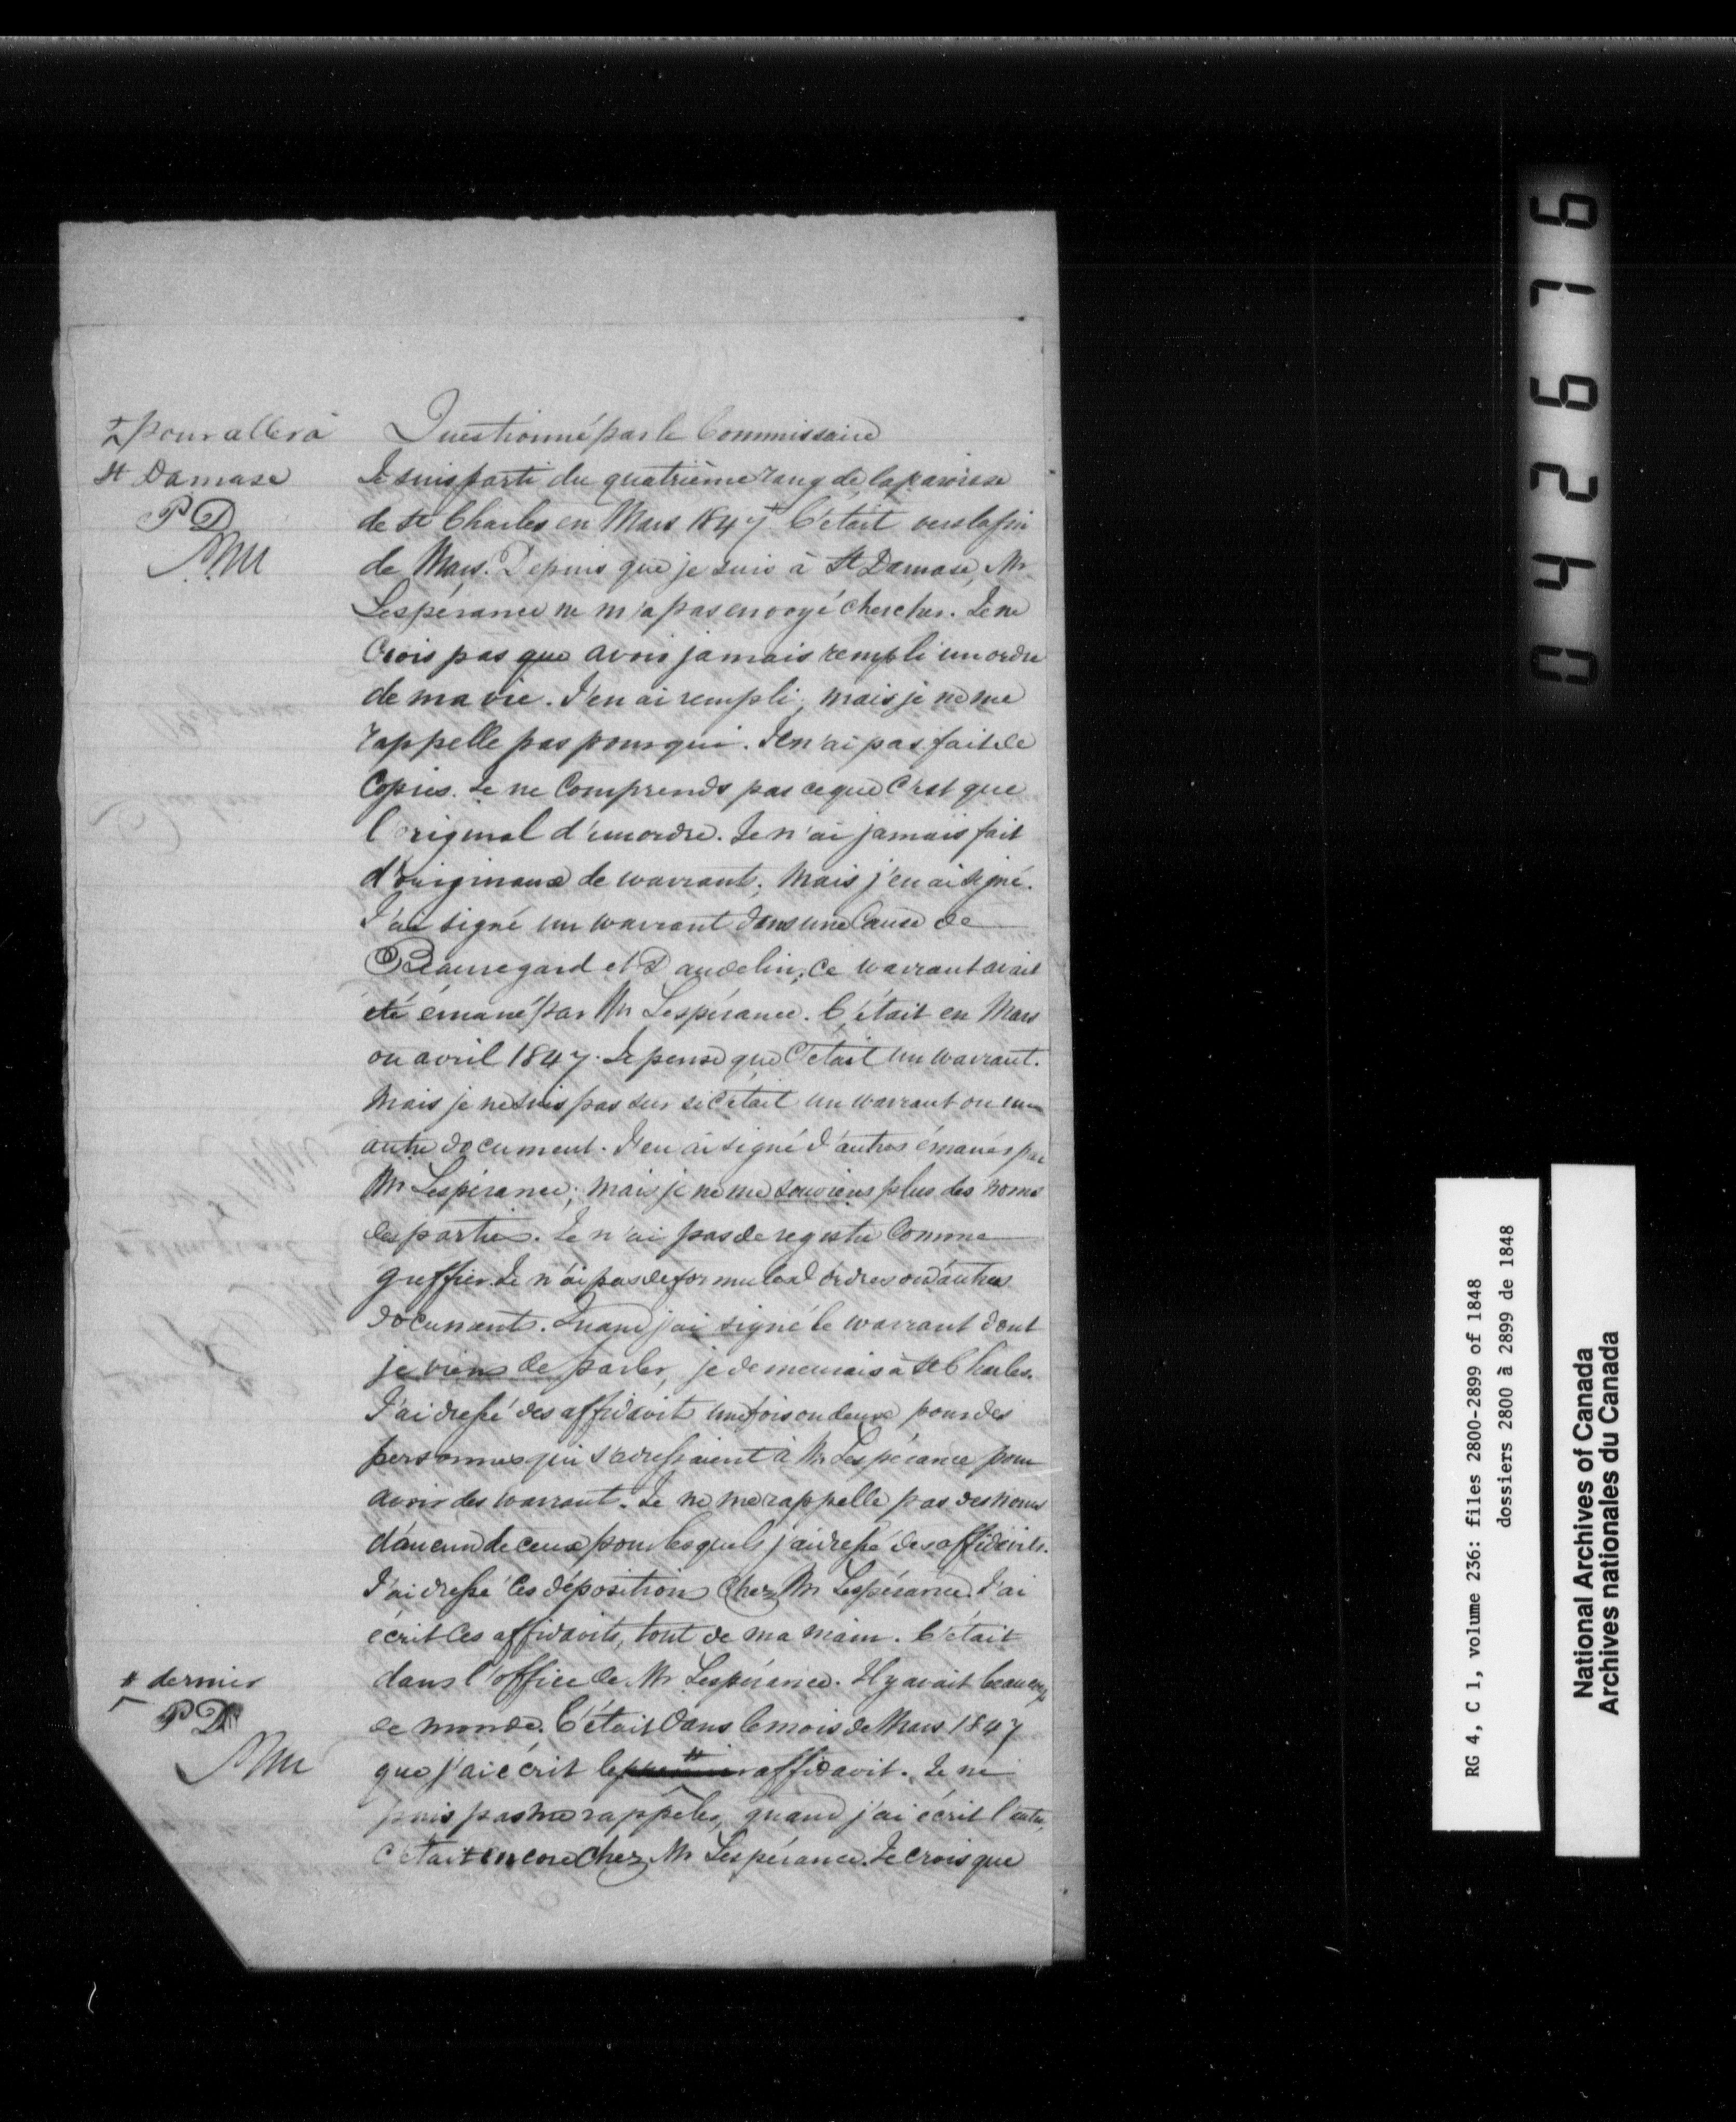 ‡ pour aller à
St Damase
PD
Questionné par le Commissaire
Je suis parti du quatrième rang de la paroisse
de St Charles en Mars 1847 ‡ C'était vers la fin
de Mars. Depuis que je suis à St Damase, Mr
Lespérance ne m'a pas envoyé chercher. Je ne
Crois pas que avoir jamais rempli un ordre
de ma vie. J'en ai rempli, mais je ne me
rappelle pas pour qui. Je n'ai pas fait de
Copies. Je ne Comprends pas ce que C'est que
l'original d'un ordre. Je n'ai jamais fait
d'originaux de warrant, mais j'en ai signé.
J'ai signé un warrant dans une Cause de
Beauregard et Daudelin, Ce warrant avait
été émané par Mr Lespérance. C'était en Mars
ou avril 1847. Je pense que C'était un warrant.
Mais je ne suis pas sur si c'était un warrant ou un
autre document. J'en ai signé d'autres émanés par
Mr Lespérance; mais je ne me souviens plus des noms
des parties. Je n'ai pas de registre Comme
greffier. Je n'ai pas de formules d'ordres ou d'autres
documents. Quand j'ai signé le warrant dont
je viens de parler, je demeurais à St Charles.
J'ai dressé des affidavits une fois ou deux pour des
personnes qui s'adressaient à Mr Lespérance pour
avoir des warrant. Je ne me rappelle pas des noms
d'aucun de ceux pour lesquels j'ai dressé des affidavits.
J'ai dressé Ces dépositions Chez Mr Lespérance. J'ai
écrit Ces affidavits, tout de ma main. C'était
dans l'office de Mr Lespérance. Il y avait beaucoup
de monde. C'était dans le mois de Mars 1847
que j'ai écrit le premier # affidavit. Je ne
puis pas me rappeler, quand j'ai écrit l'autre,
C'était encore Chez Mr Lespérance. Je crois que
# dernier
PD
042676
RG 4, C 1, volume 236: files 2800-2899 of 1848
dossiers 2800 à 2899 de 1848
National Archives of Canada
Archives nationales du Canada